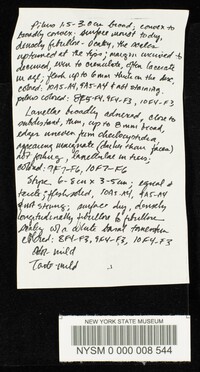 Pileus 1.5-3.0cm broad, convex to
broadly convex; surface moist to dry,
densely fibrillose-scaly, the scales
upturned at the tips; margin incurved to
decurved, even to crenulate, often lacerate
in age; flesh up to 6mm thick on the disc,
colored 10A5-A4, 9A5-A4 & not staining.
pileus colored: 8F5-F4, 9F4-F3, 10F4-F3
Lamellae broadly adnexed, close to
subdistant, thin, up to 8mm broad,
edges uneven from cheilocystidia &
appearing marginate (darker than faces)
not forking, lamellulae in tiers;
colored: 9F7-F6, 10F7-F6
Stipe 6-8cm x 3-5mm; equal &
terete; flesh solid, 10A5-A4, 9A5-A4
& not staining; surface dry, densely
longitudinally fibrillose to fibrillose
scaly w/ a white basal tomentum
colored: 8F4-F3, 9F4-F3, 10F4-F3
Odor mild
Taste mild
NEW YORK STATE MUSEUM
NYSM 0 000 008 544